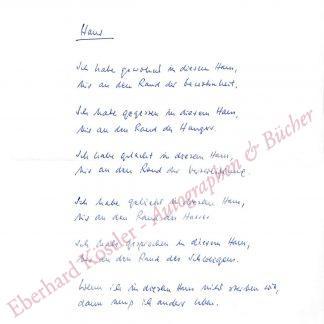 Haus
Ich habe gewohnt in diesem Haus,
bis an den Rand der bewohnheit.
Ich habe gegessen in diesem Haus,
bis an den Rand des Hungers.
Ich habe gelacht in diesem Haus,
bis an den Rand der
Ich habe geliebt in diesem Haus,
bis an den Rand des Hasses.
Ich habe gesprochen in diesem Haus,
bis an den Rand des Schweigens.
Wenn ich in diesem Haus nicht sterben will,
dann muss ich anders leben.
Eberhard Köstler - Autographen & Bücher